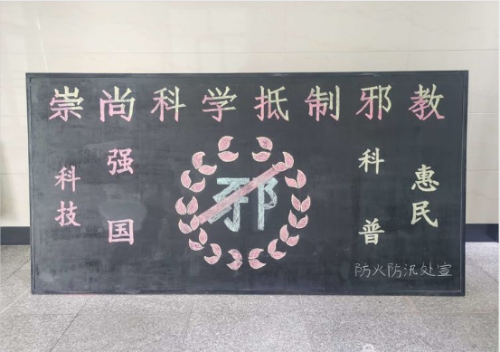 崇尚科学抵制邪教
科技
强国
邪
科普
惠民
防火防汛处宣